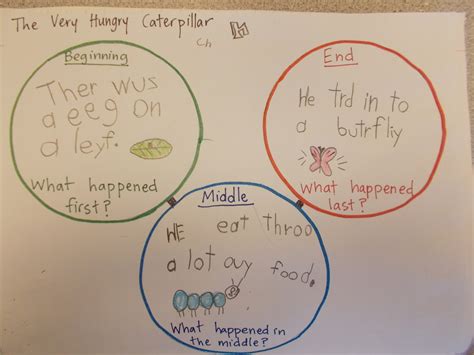 The Very Hungry Caterpillar
Ch
Beginning
Ther wus
a eeg on
a leyf.
What happened
first?
Middle
HE eat throo
a lot ouy food.
What happened in
the middle?
End
He trd in to
a butrfliy
What happened
last?